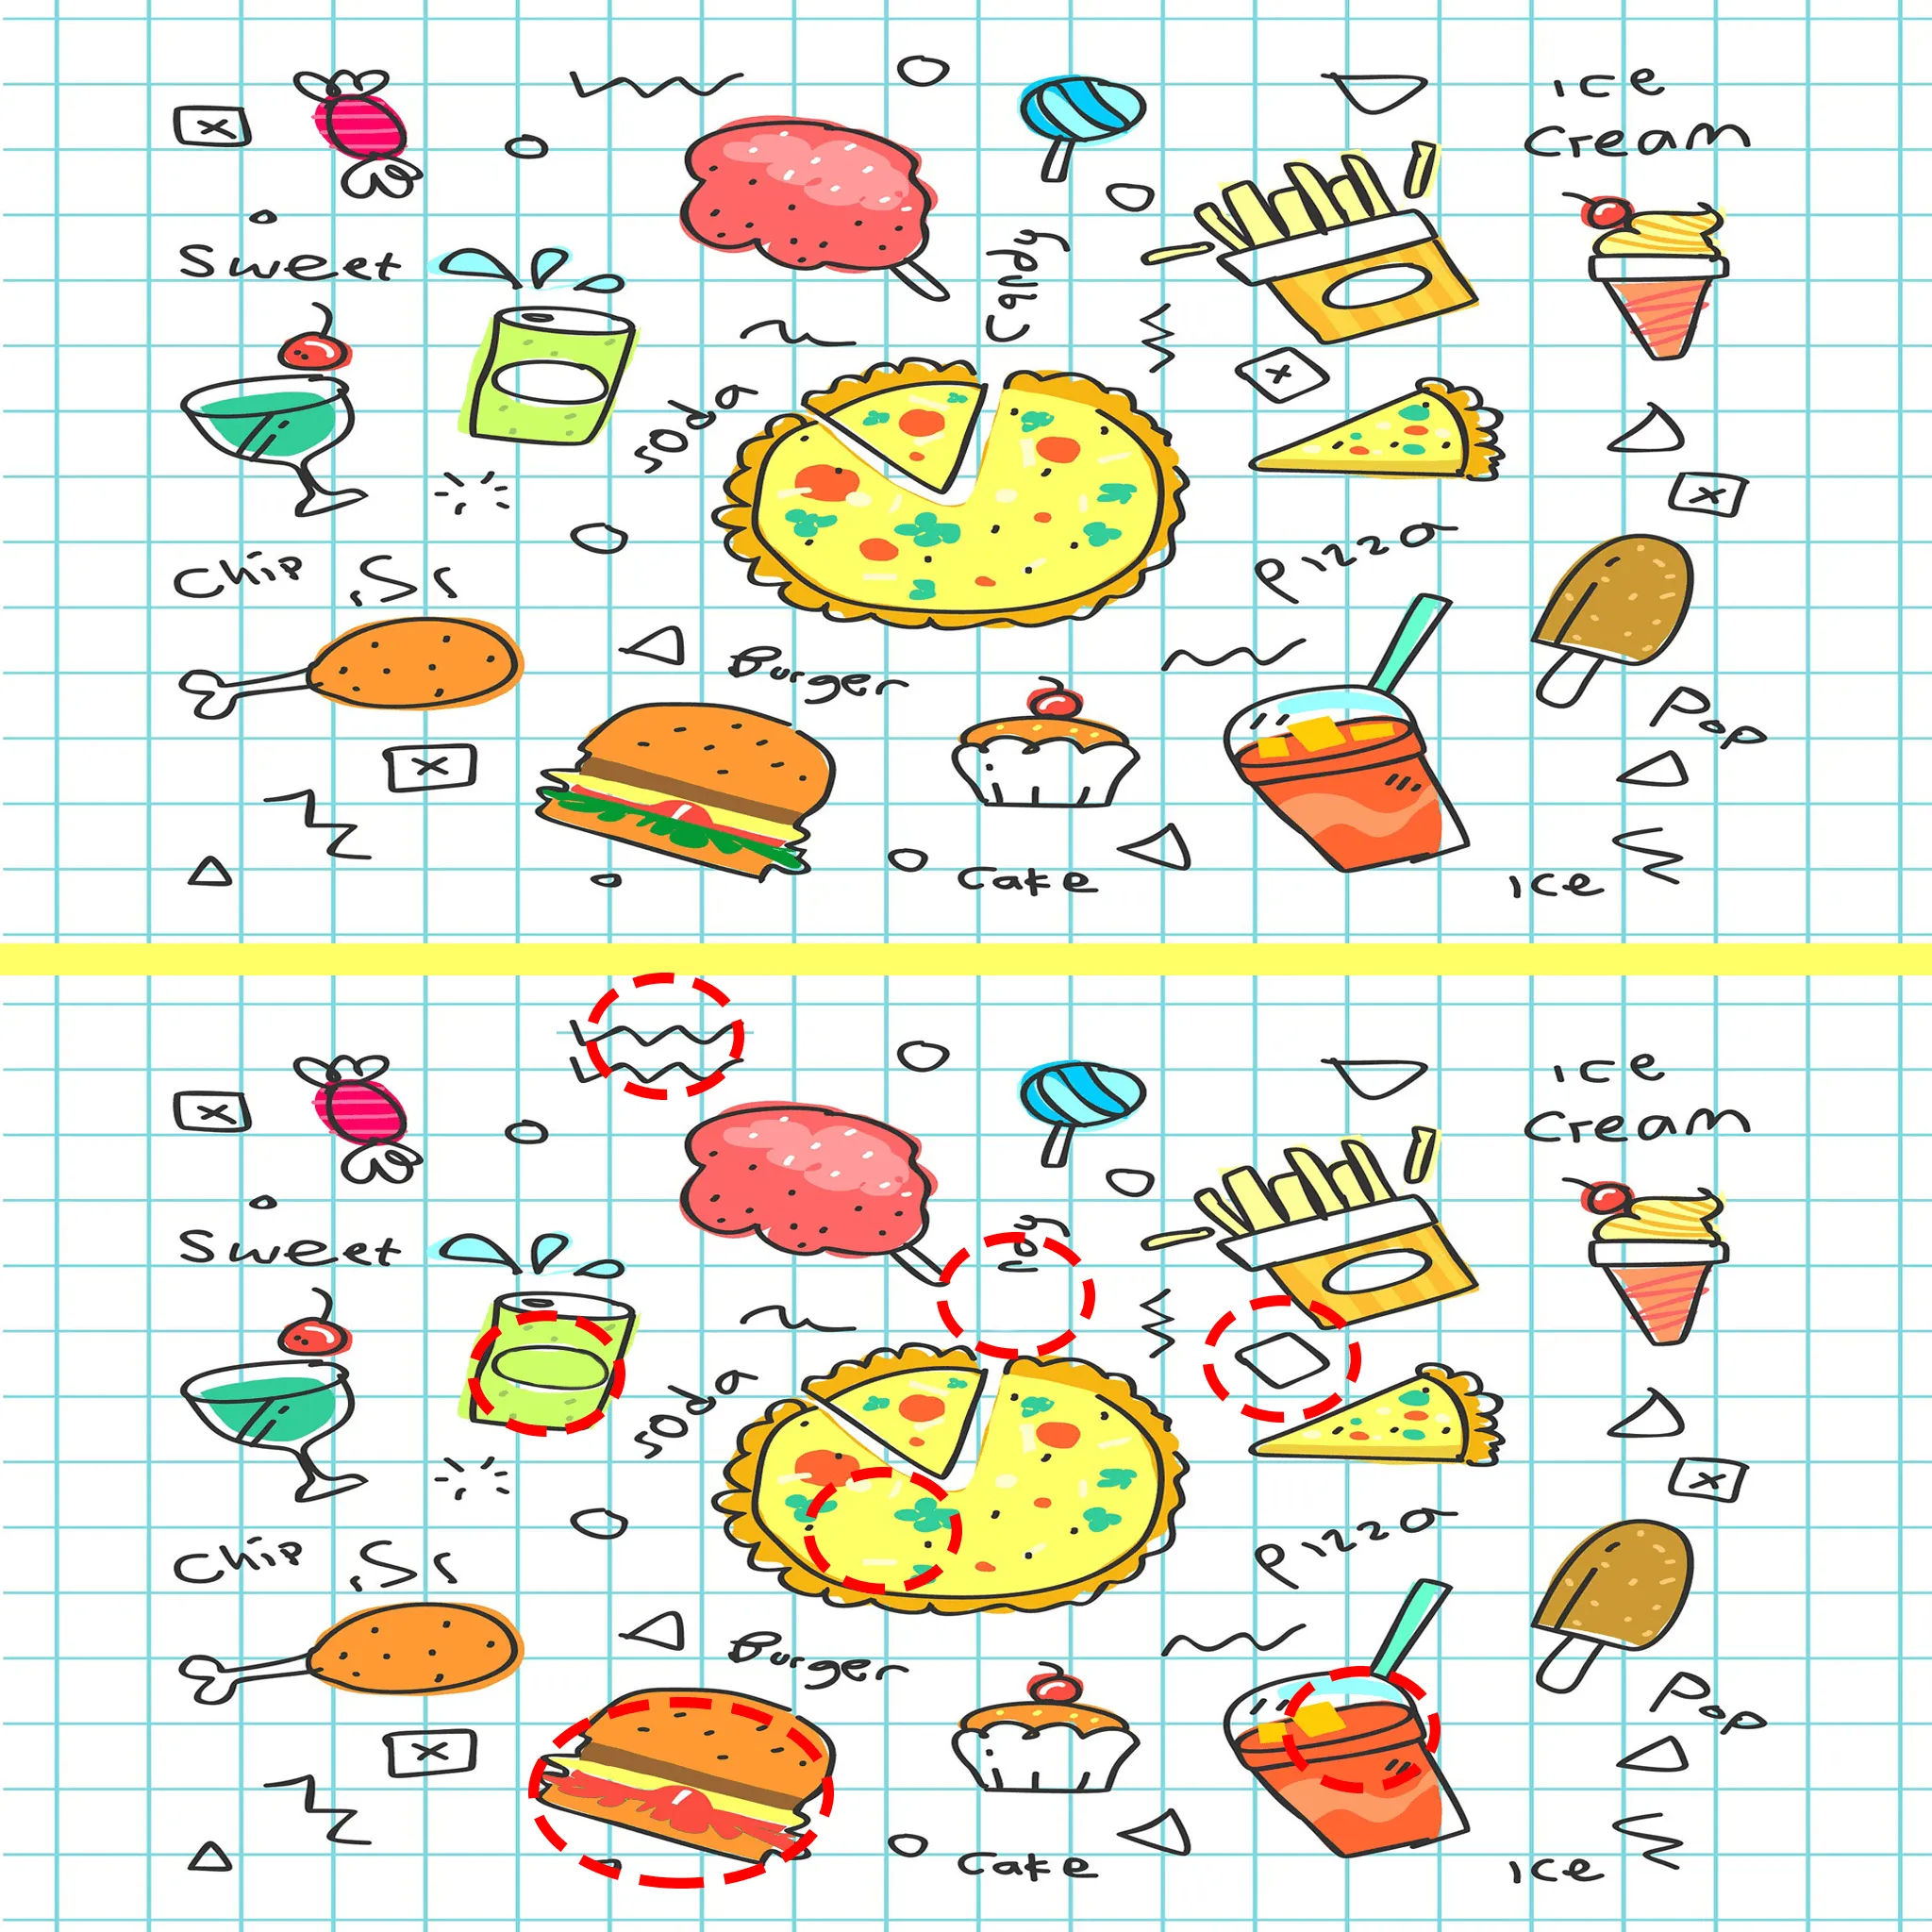 ice
Cream
Sweet
Candy
soda
Chip
pizza
Burger
Pop
Cake
ice
ice
Cream
Sweet
ndy
soda
Chip
pizza
Burger
Pop
Cake
ice